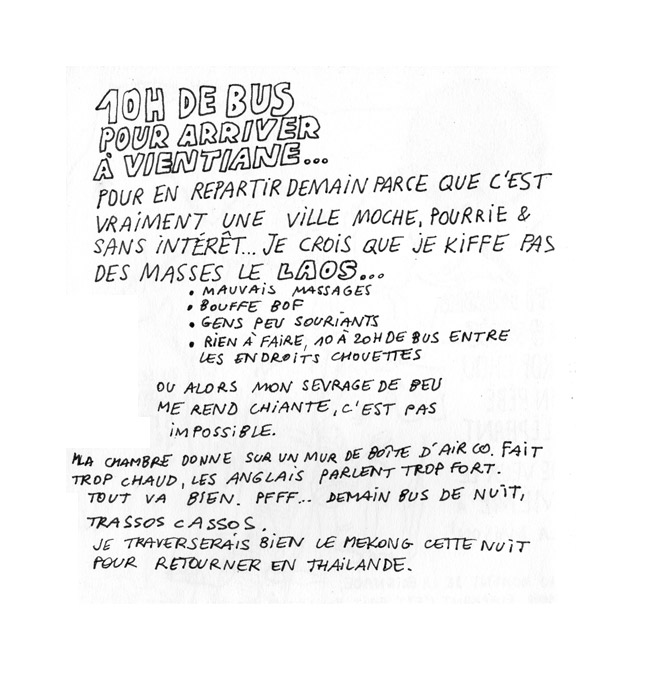 10H DE BUS
POUR ARRIVER
À VIENTIANE...
POUR EN REPARTIR DEMAIN PARCE QUE C'EST
VRAIMENT UNE VILLE MOCHE, POURRIE &
SANS INTÉRÊT... JE CROIS QUE JE KIFFE PAS
DES MASSES LE LAOS...
• MAUVAIS MASSAGES
• BOUFFE BOF
• GENS PEU SOURIANTS
• RIEN À FAIRE, 10 À 20H DE BUS ENTRE
LES ENDROITS CHOUETTES
OU ALORS MON SEVRAGE DE BEU
ME REND CHIANTE, C'EST PAS
IMPOSSIBLE.
LA CHAMBRE DONNE SUR UN MUR DE BOÎTE D'AIR CO. FAIT
TROP CHAUD, LES ANGLAIS PARLENT TROP FORT.
TOUT VA BIEN. PFFF... DEMAIN BUS DE NUIT,
TRASSOS CASSOS.
JE TRAVERSERAIS BIEN LE MEKONG CETTE NUIT
POUR RETOURNER EN THAÏLANDE.